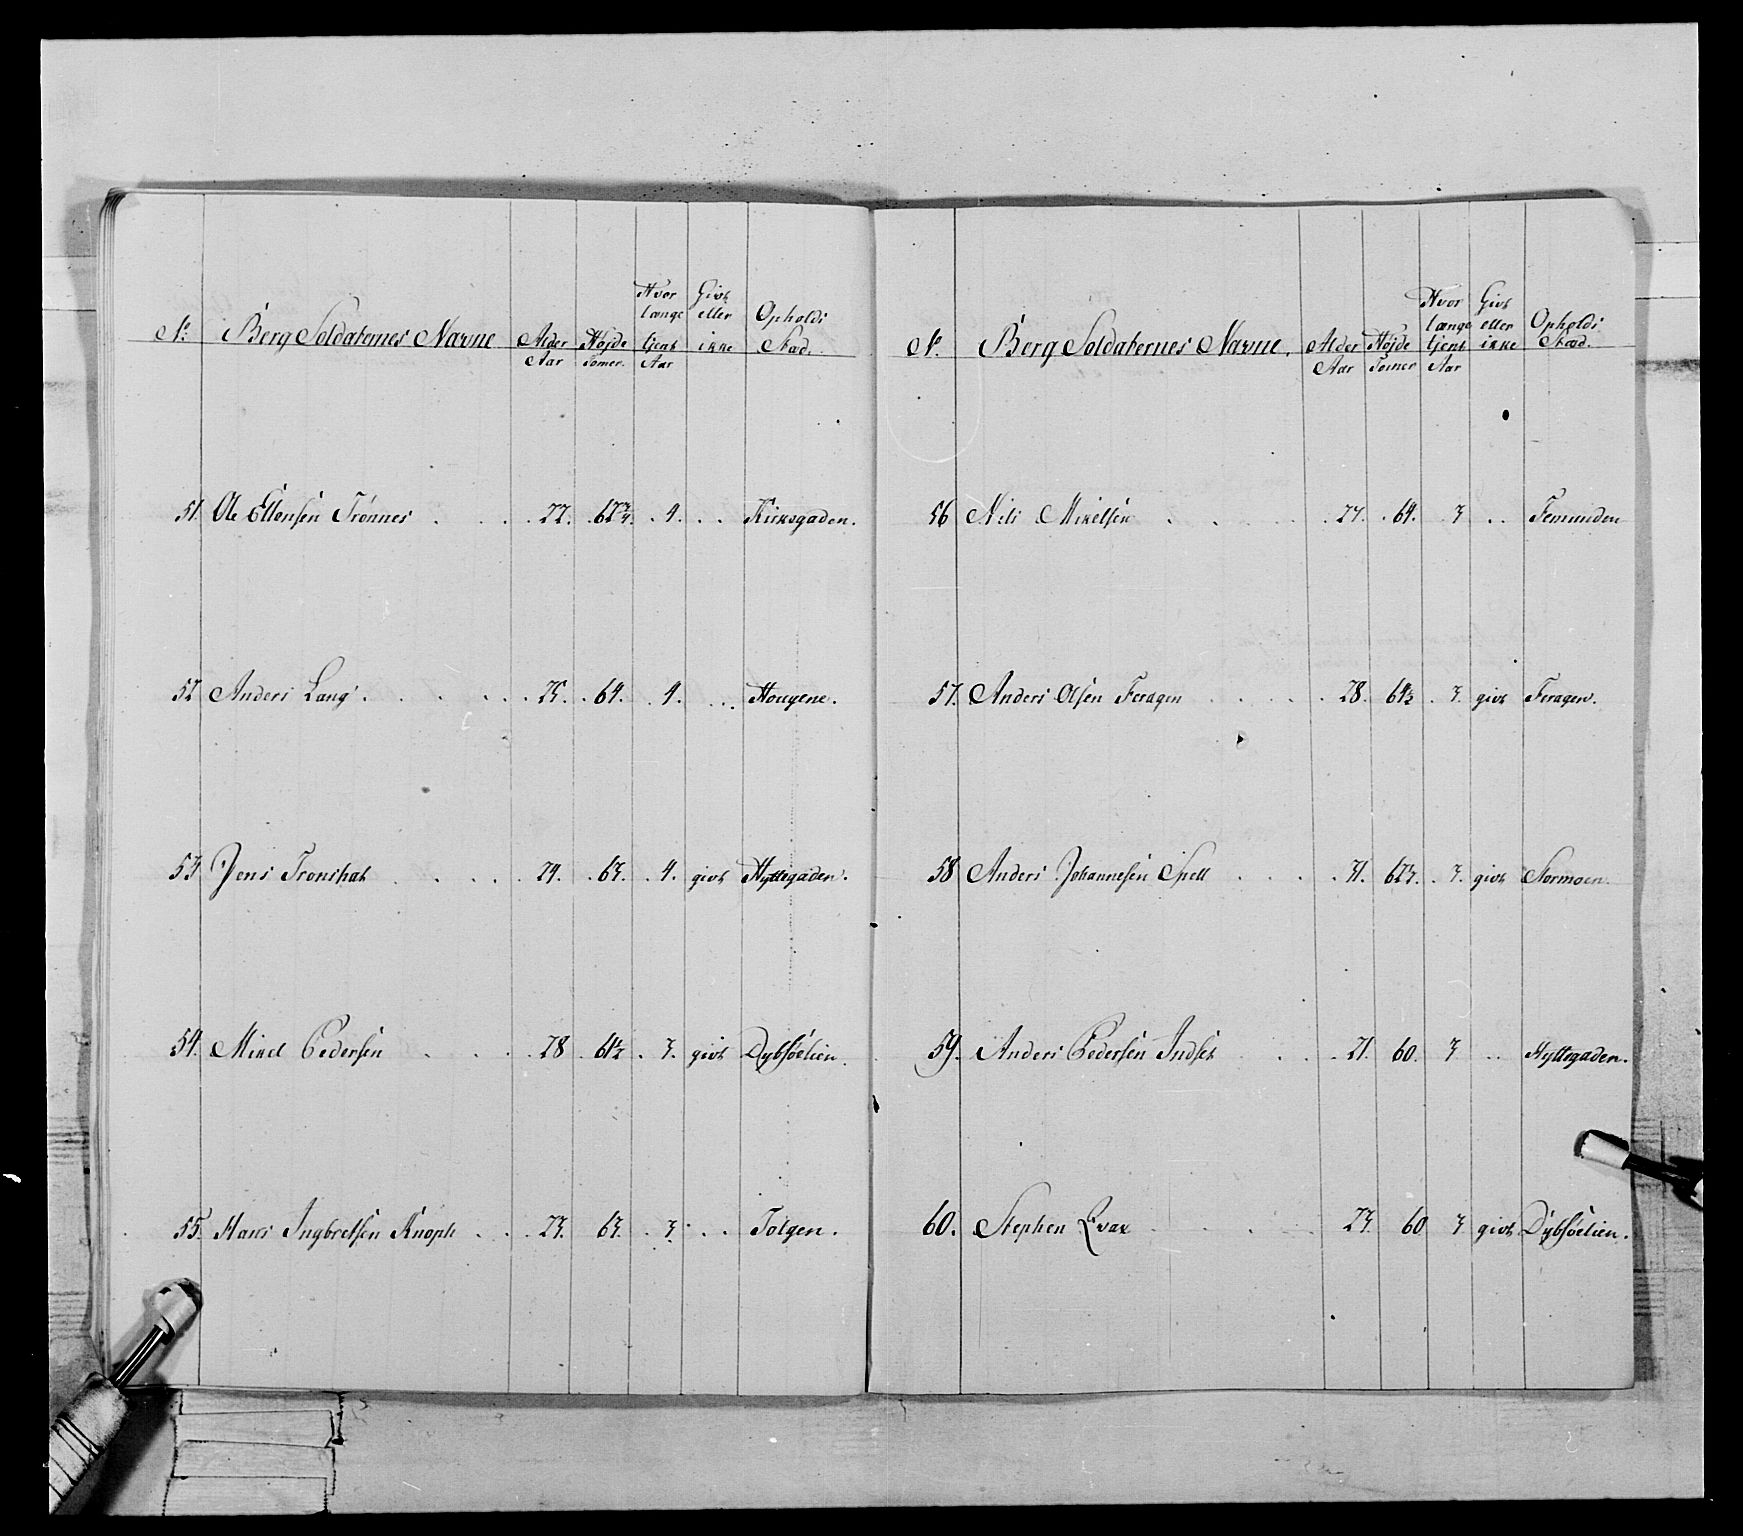 No. Berg Soldaternes Navne Alder Aar Højde Tomer. Hvor længe tjent Aar Givt eller ikke Opholds Stæd.
51. Ole Ellensen Trønnes . . . . 22. . 62 3/4. . 4. . . Kirkegaden.
52 Anders Lang . . . . . 25. . 64. . 4. . . . Hougene.
53 Jens Tronshat . . . . 24. . 63. . 4. givt Hyttegaden.
54. Mikel Pedersen . . . . 28 . 61 1/2 . 3. givt Dybsøelien.
55. Hans Ingbretsen Knoph . . . 23. 63. . 3. . . Tolgen.
No. Berg Soldaternes Navne. Alder Aar Højde Tomer Hvor længe tjent Aar Givt eller ikke Opholds Stæd.
56 Nils Mikelsen . . . . . 27. . 64. 3 . . Femunden
57. Anders Olsen Feragen . . . . . 28. 64 1/2 . 3. givt Feragen.
58 Anders Johannesen Spell . . . . 31. 62 3. . 3. givt Stormoen.
59. Anders Pedersen Indset . . . 21. 60. 3 . . Hyttegaden.
60. Stephen Qvar . . . . . 23. 60 3 givt Dybsøelien.